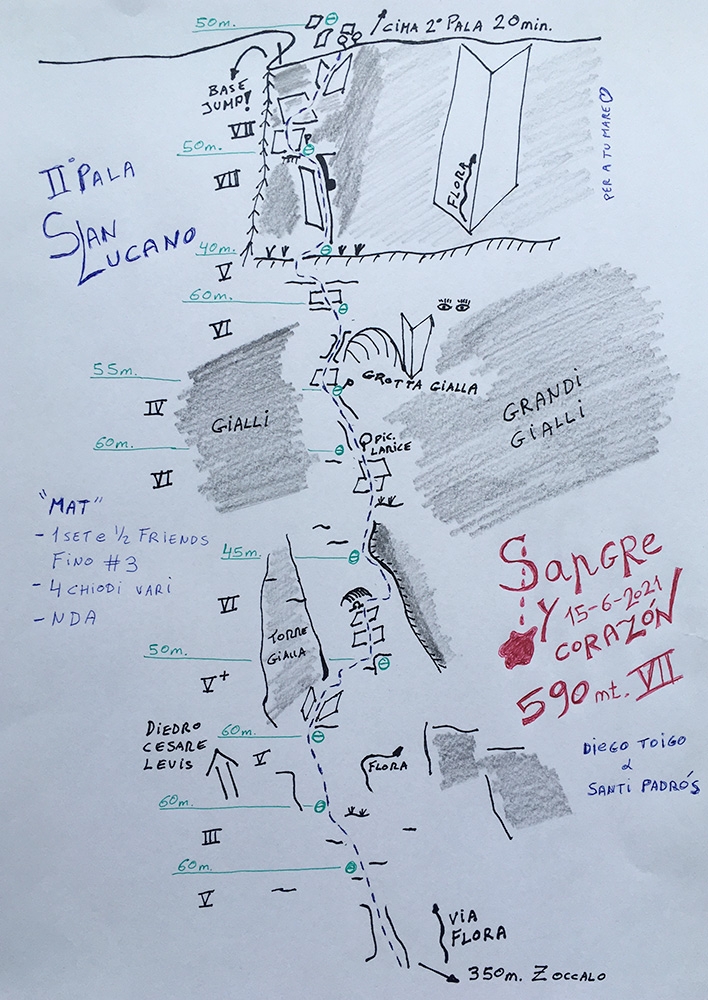 50m.
CIMA 2° PALA 20 min.
BASE
JUMP!
VII
50m.
VII
II° PALA
SAN
LUCANO
PER A TU MARE
FLORA
40m.
V
60m.
VI
55m.
GROTTA GIALLA
IV
GIALLI
GRANDI
GIALLI
60m.
PIC.
LARICE
VI
"MAT"
- 1 SET e 1/2 FRIENDS
FINO #3
- 4 CHIODI VARI
- NDA
45m.
VI
TORRE
GIALLA
SANGRE
Y 15-6-2021
CORAZÓN
590 mt. VII
50m.
V+
DIEDRO
CESARE
LEVIS
60m.
V
FLORA
DIEGO TOIGO
&
SANTI PADRÓS
60m.
III
60m.
V
VIA
FLORA
350m. ZOCCALO